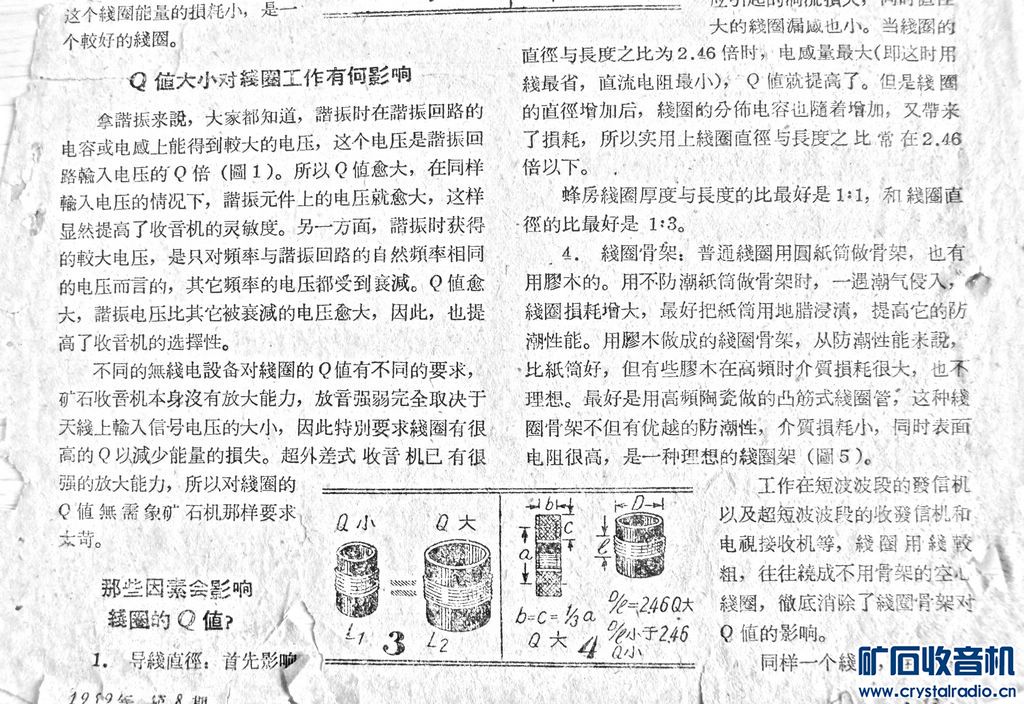 这个綫圈能量的損耗小，是一
个較好的綫圈。
Q 值大小对綫圈工作有何影响
拿諧振来說，大家都知道，諧振时在諧振回路的
电容或电感上能得到較大的电压，这个电压是諧振回
路輸入电压的 Q 倍（圖 1）。所以 Q 值愈大，在同样
輸入电压的情况下，諧振元件上的电压就愈大，这样
显然提高了收音机的灵敏度。另一方面，諧振时获得
的較大电压，是只对頻率与諧振回路的自然頻率相同
的电压而言的，其它頻率的电压都受到衰减。Q 值愈
大，諧振电压比其它被衰减的电压愈大，因此，也提
高了收音机的选擇性。
不同的無綫电設备对綫圈的 Q 值有不同的要求，
矿石收音机本身沒有放大能力，放音强弱完全取决于
天綫上輸入信号电压的大小，因此特别要求綫圈有很
高的 Q 以减少能量的損失。超外差式 收音 机已 有很
强的放大能力，所以对綫圈的
Q 值 無 需 象矿 石机那样要求
太苛。
那些因素会影响
綫圈的 Q 值？
1. 导綫直徑：首先影响
1959年 第 8 期
大的綫圈漏感也小。当綫圈的
直徑与長度之比为 2.46 倍时，电感量最大(即这时用
綫最省，直流电阻最小)，Q 值就提高了。但是綫 圈
的直徑增加后，綫圈的分佈电容也随着增加，又帶来
了損耗，所以实用上綫圈直徑与長度之 比 常 在 2.46
倍以下。
蜂房綫圈厚度与長度的比最好是 1:1，和 綫圈直
徑的比最好是 1:3。
4. 綫圈骨架：普通綫圈用圓紙筒做骨架，也有
用膠木的。用不防潮紙筒做骨架时，一遇潮气侵入，
綫圈損耗增大，最好把紙筒用地腊浸漬，提高它的防
潮性能。用膠木做成的綫圈骨架，从防潮性能来說，
比紙筒好，但有些膠木在高頻时介質損耗很大，也不
理想。最好是用高頻陶瓷做的凸筋式綫圈管，这种綫
圈骨架不但有优越的防潮性，介質損耗小，同时表面
电阻很高，是一种理想的綫圈架（圖 5）。
工作在短波波段的發信机
以及超短波波段的收發信机和
电視接收机等，綫 圈 用 綫 較
粗，往往繞成不用骨架的空心
綫圈，徹底消除了綫圈骨架对
Q 值的影响。
同样一个綫
Q 小
Q 大
L1
3
L2
b
c
a
b=c=⅓a
Q 大
4
D
ℓ
D/ℓ=2.46 Q大
D/ℓ小于2.46
Q小
矿石收音机
www.crystalradio.cn